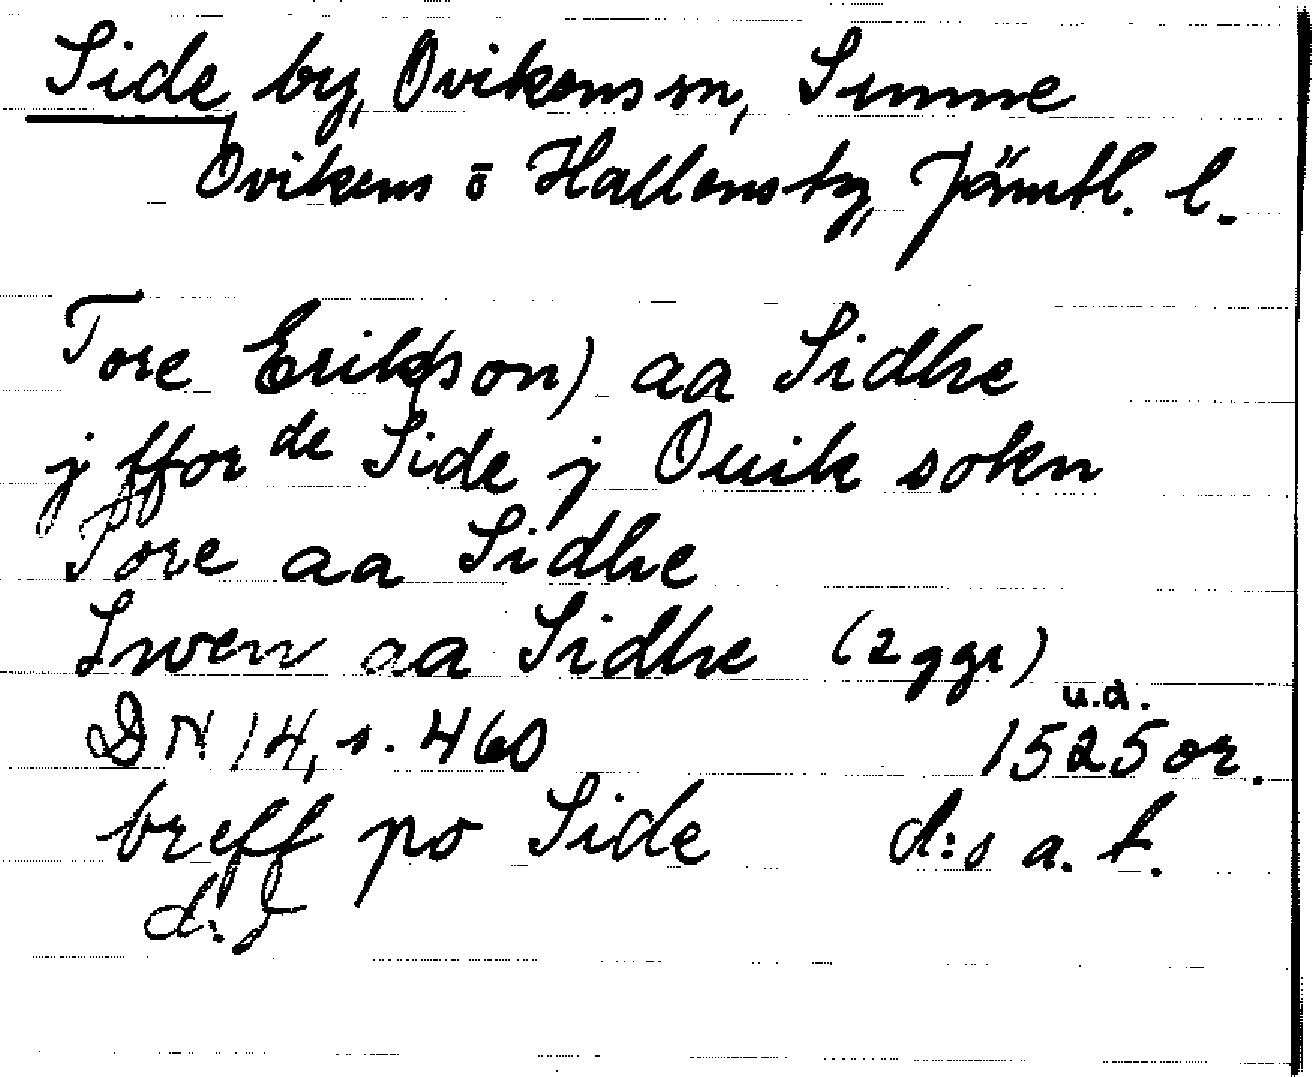 Side by, Ovikens sn, Sunne
Ovikens o Hallens tg, Jämtl. l.
Tore Erik(son) aa Sidhe
j fforde Side j Ouik sokn
Tore aa Sidhe
Swen aa Sidhe (2 ggr)
u.d.
DN 14, s. 460 1525 or.
breff po Side d:o a. t.
d:o